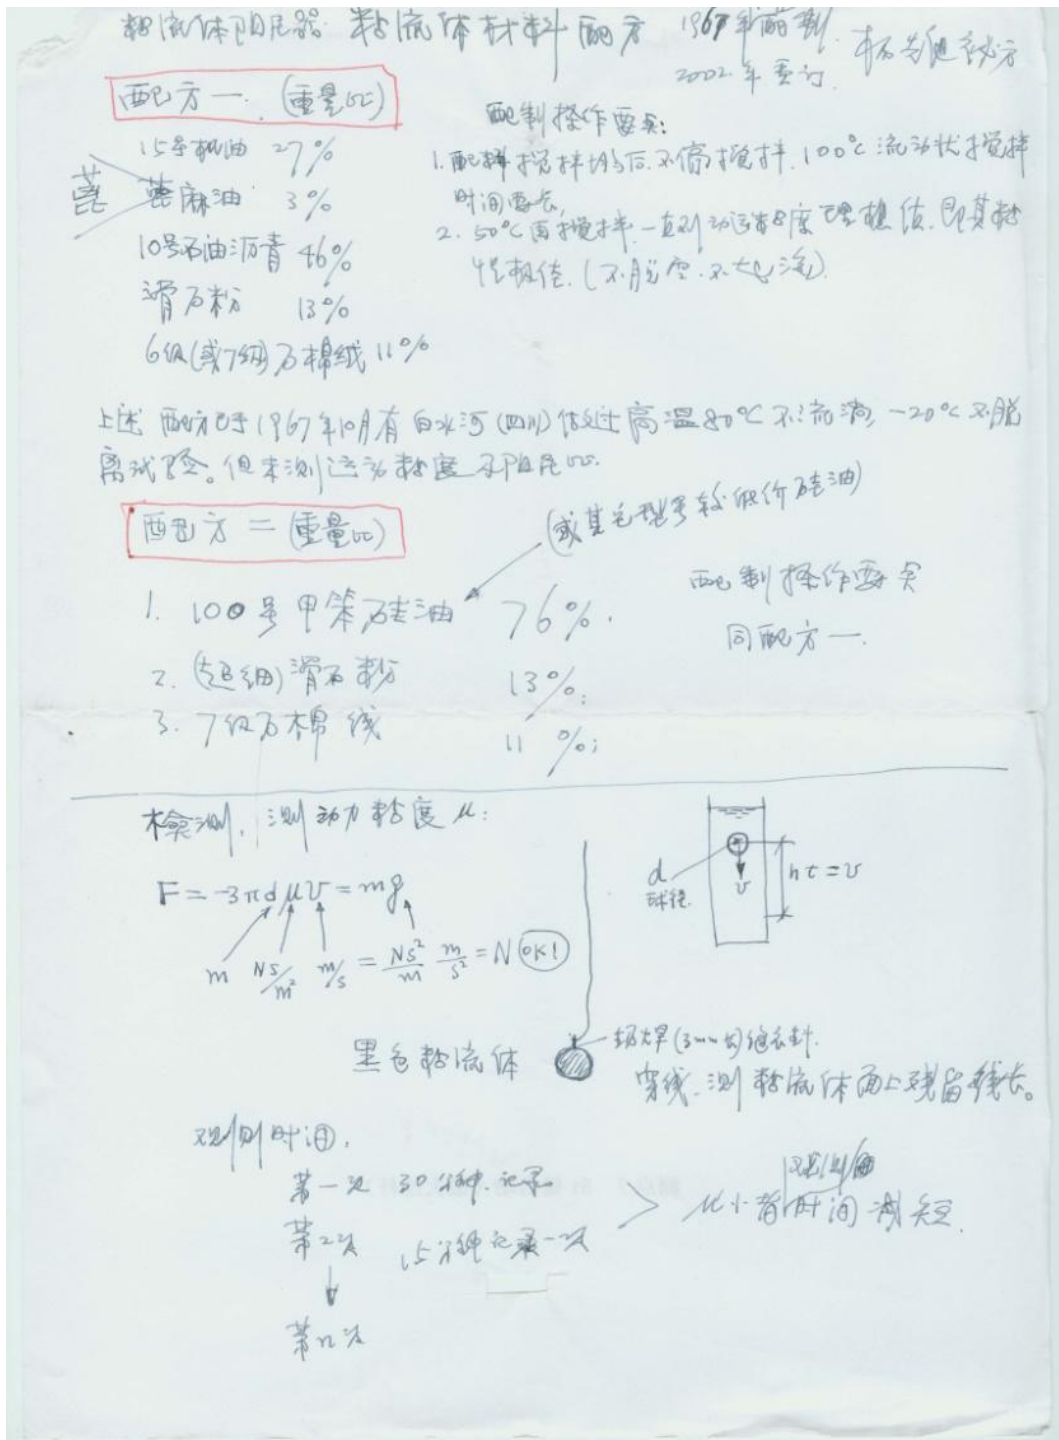 粘流体阻尼器 粘流体材料配方 1967年研制.
2002年重订.
配方一. (重量比)
15号机油 27%
蓖麻油 3%
蓖
10号石油沥青 46%
滑石粉 13%
6级(或7级)石棉绒 11%
配制操作要点:
1. 配料搅拌均匀后.不停搅拌.100°C流动状搅拌
时间要长,
2. 50°C再搅拌.一直到动运粘度理想值.即其粘
性极佳.(不脱空.不大流).
上述配方已于1967年10月有白水河(四川)做过高温80°C不流淌,-20°C不脱
离试验。但未测运动粘度和阻尼比.
配方二(重量比)
(或其它型号较低价硅油)
1. 100号甲苯硅油 76%.
2. (超细)滑石粉 13%;
3. 7级石棉线 11%;
配制操作要点
同配方一.
检测.测动力粘度μ:
F = -3πdμv = mg
m Ns/m² m/s = Ns²/m m/s² = N OK!
d
球径.
v
h t = v
黑色粘流体
钢焊(3mm长)缝衣针.
穿线.测粘流体面上残留线长。
观测时间.
第一次 30分钟.记录
第2次 15分钟记录一次
第n次
观测
μ小者时间测短.